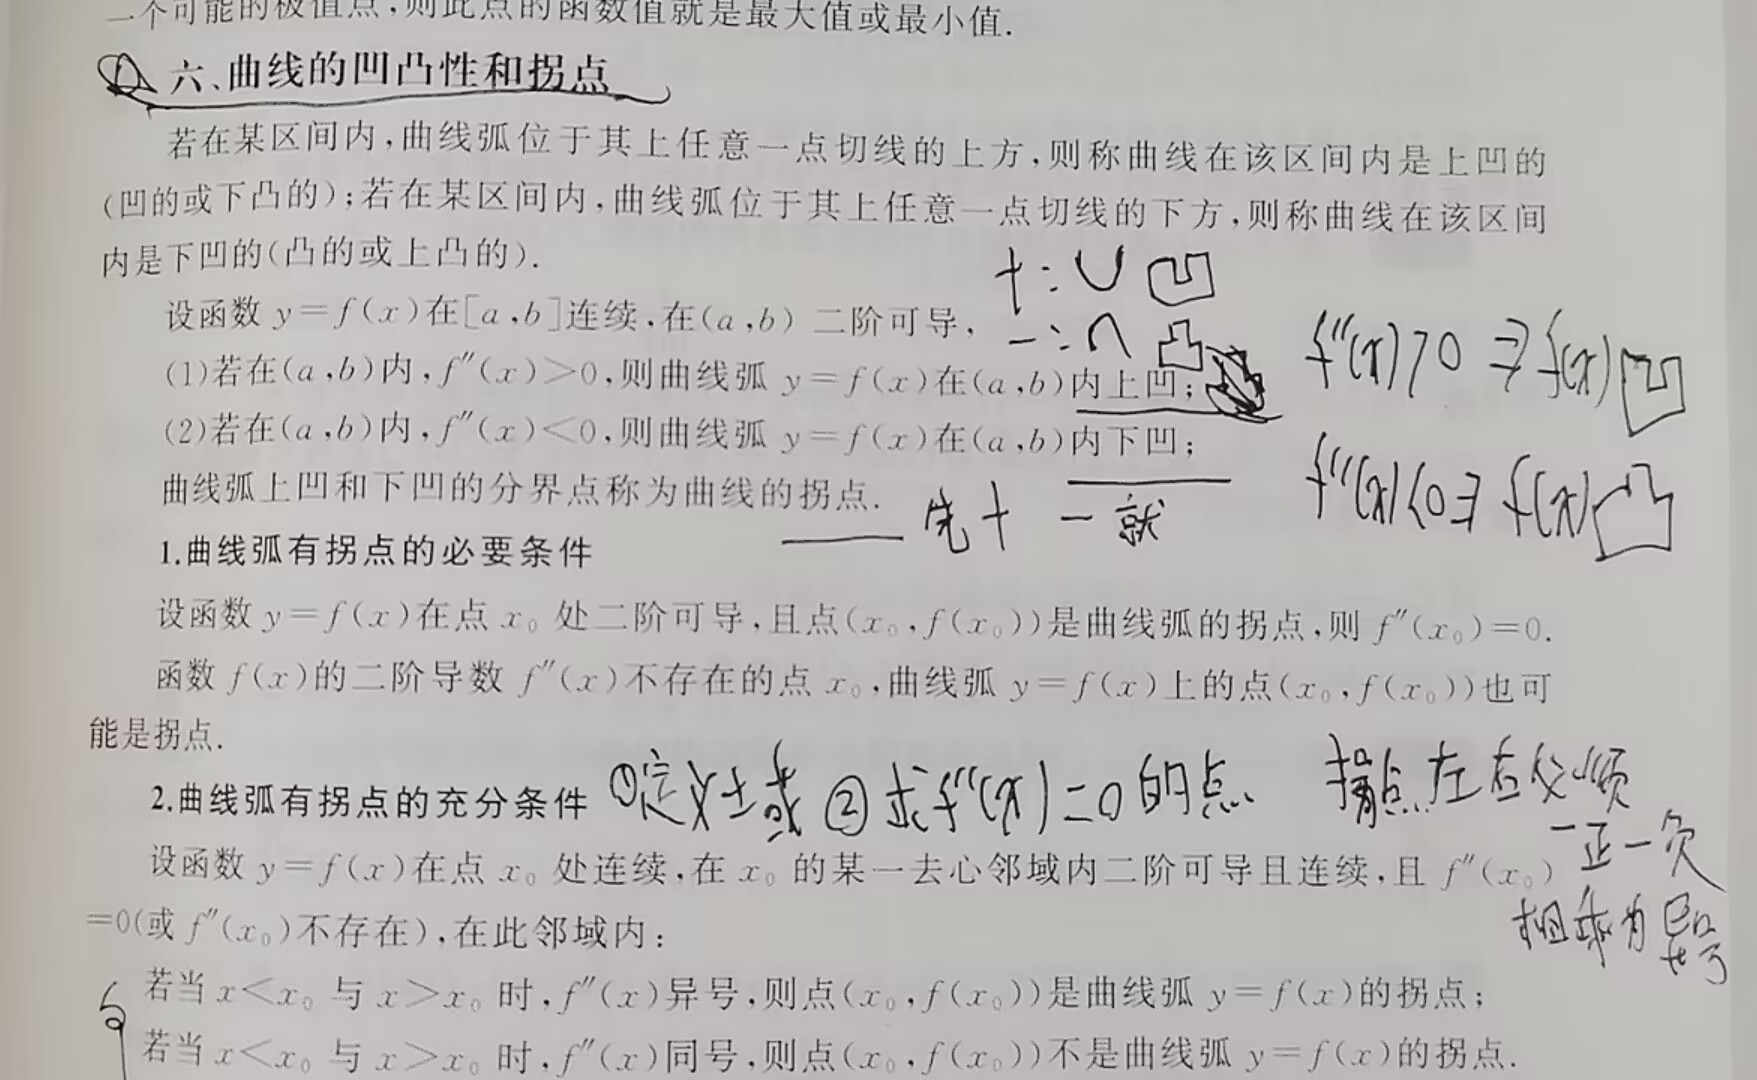 一个可能的极值点,则此点的函数值就是最大值或最小值.
六、曲线的凹凸性和拐点
若在某区间内,曲线弧位于其上任意一点切线的上方,则称曲线在该区间内是上凹的
(凹的或下凸的);若在某区间内,曲线弧位于其上任意一点切线的下方,则称曲线在该区间
内是下凹的(凸的或上凸的).
+:∪ 凹
设函数 y=f(x)在[a,b]连续,在(a,b) 二阶可导,
-:∩ 凸
(1)若在(a,b)内,f″(x)>0,则曲线弧 y=f(x)在(a,b)内上凹;
f″(x)>0 ⇒ f(x)凹
(2)若在(a,b)内,f″(x)<0,则曲线弧 y=f(x)在(a,b)内下凹;
f″(x)<0⇒ f(x)凸
曲线弧上凹和下凹的分界点称为曲线的拐点.
先+ - 就
1.曲线弧有拐点的必要条件
设函数 y=f(x)在点 x₀ 处二阶可导,且点(x₀,f(x₀))是曲线弧的拐点,则 f″(x₀)=0.
函数 f(x)的二阶导数 f″(x)不存在的点 x₀,曲线弧 y=f(x)上的点(x₀,f(x₀))也可
能是拐点.
2.曲线弧有拐点的充分条件
①定义域 ②求f″(x)=0的点 拐点左右必须
一正一负
相乘为异号
设函数 y=f(x)在点 x₀ 处连续,在 x₀ 的某一去心邻域内二阶可导且连续,且 f″(x₀)
=0(或 f″(x₀)不存在),在此邻域内:
若当 x<x₀ 与 x>x₀ 时,f″(x)异号,则点(x₀,f(x₀))是曲线弧 y=f(x)的拐点;
若当 x<x₀ 与 x>x₀ 时,f″(x)同号,则点(x₀,f(x₀))不是曲线弧 y=f(x)的拐点.